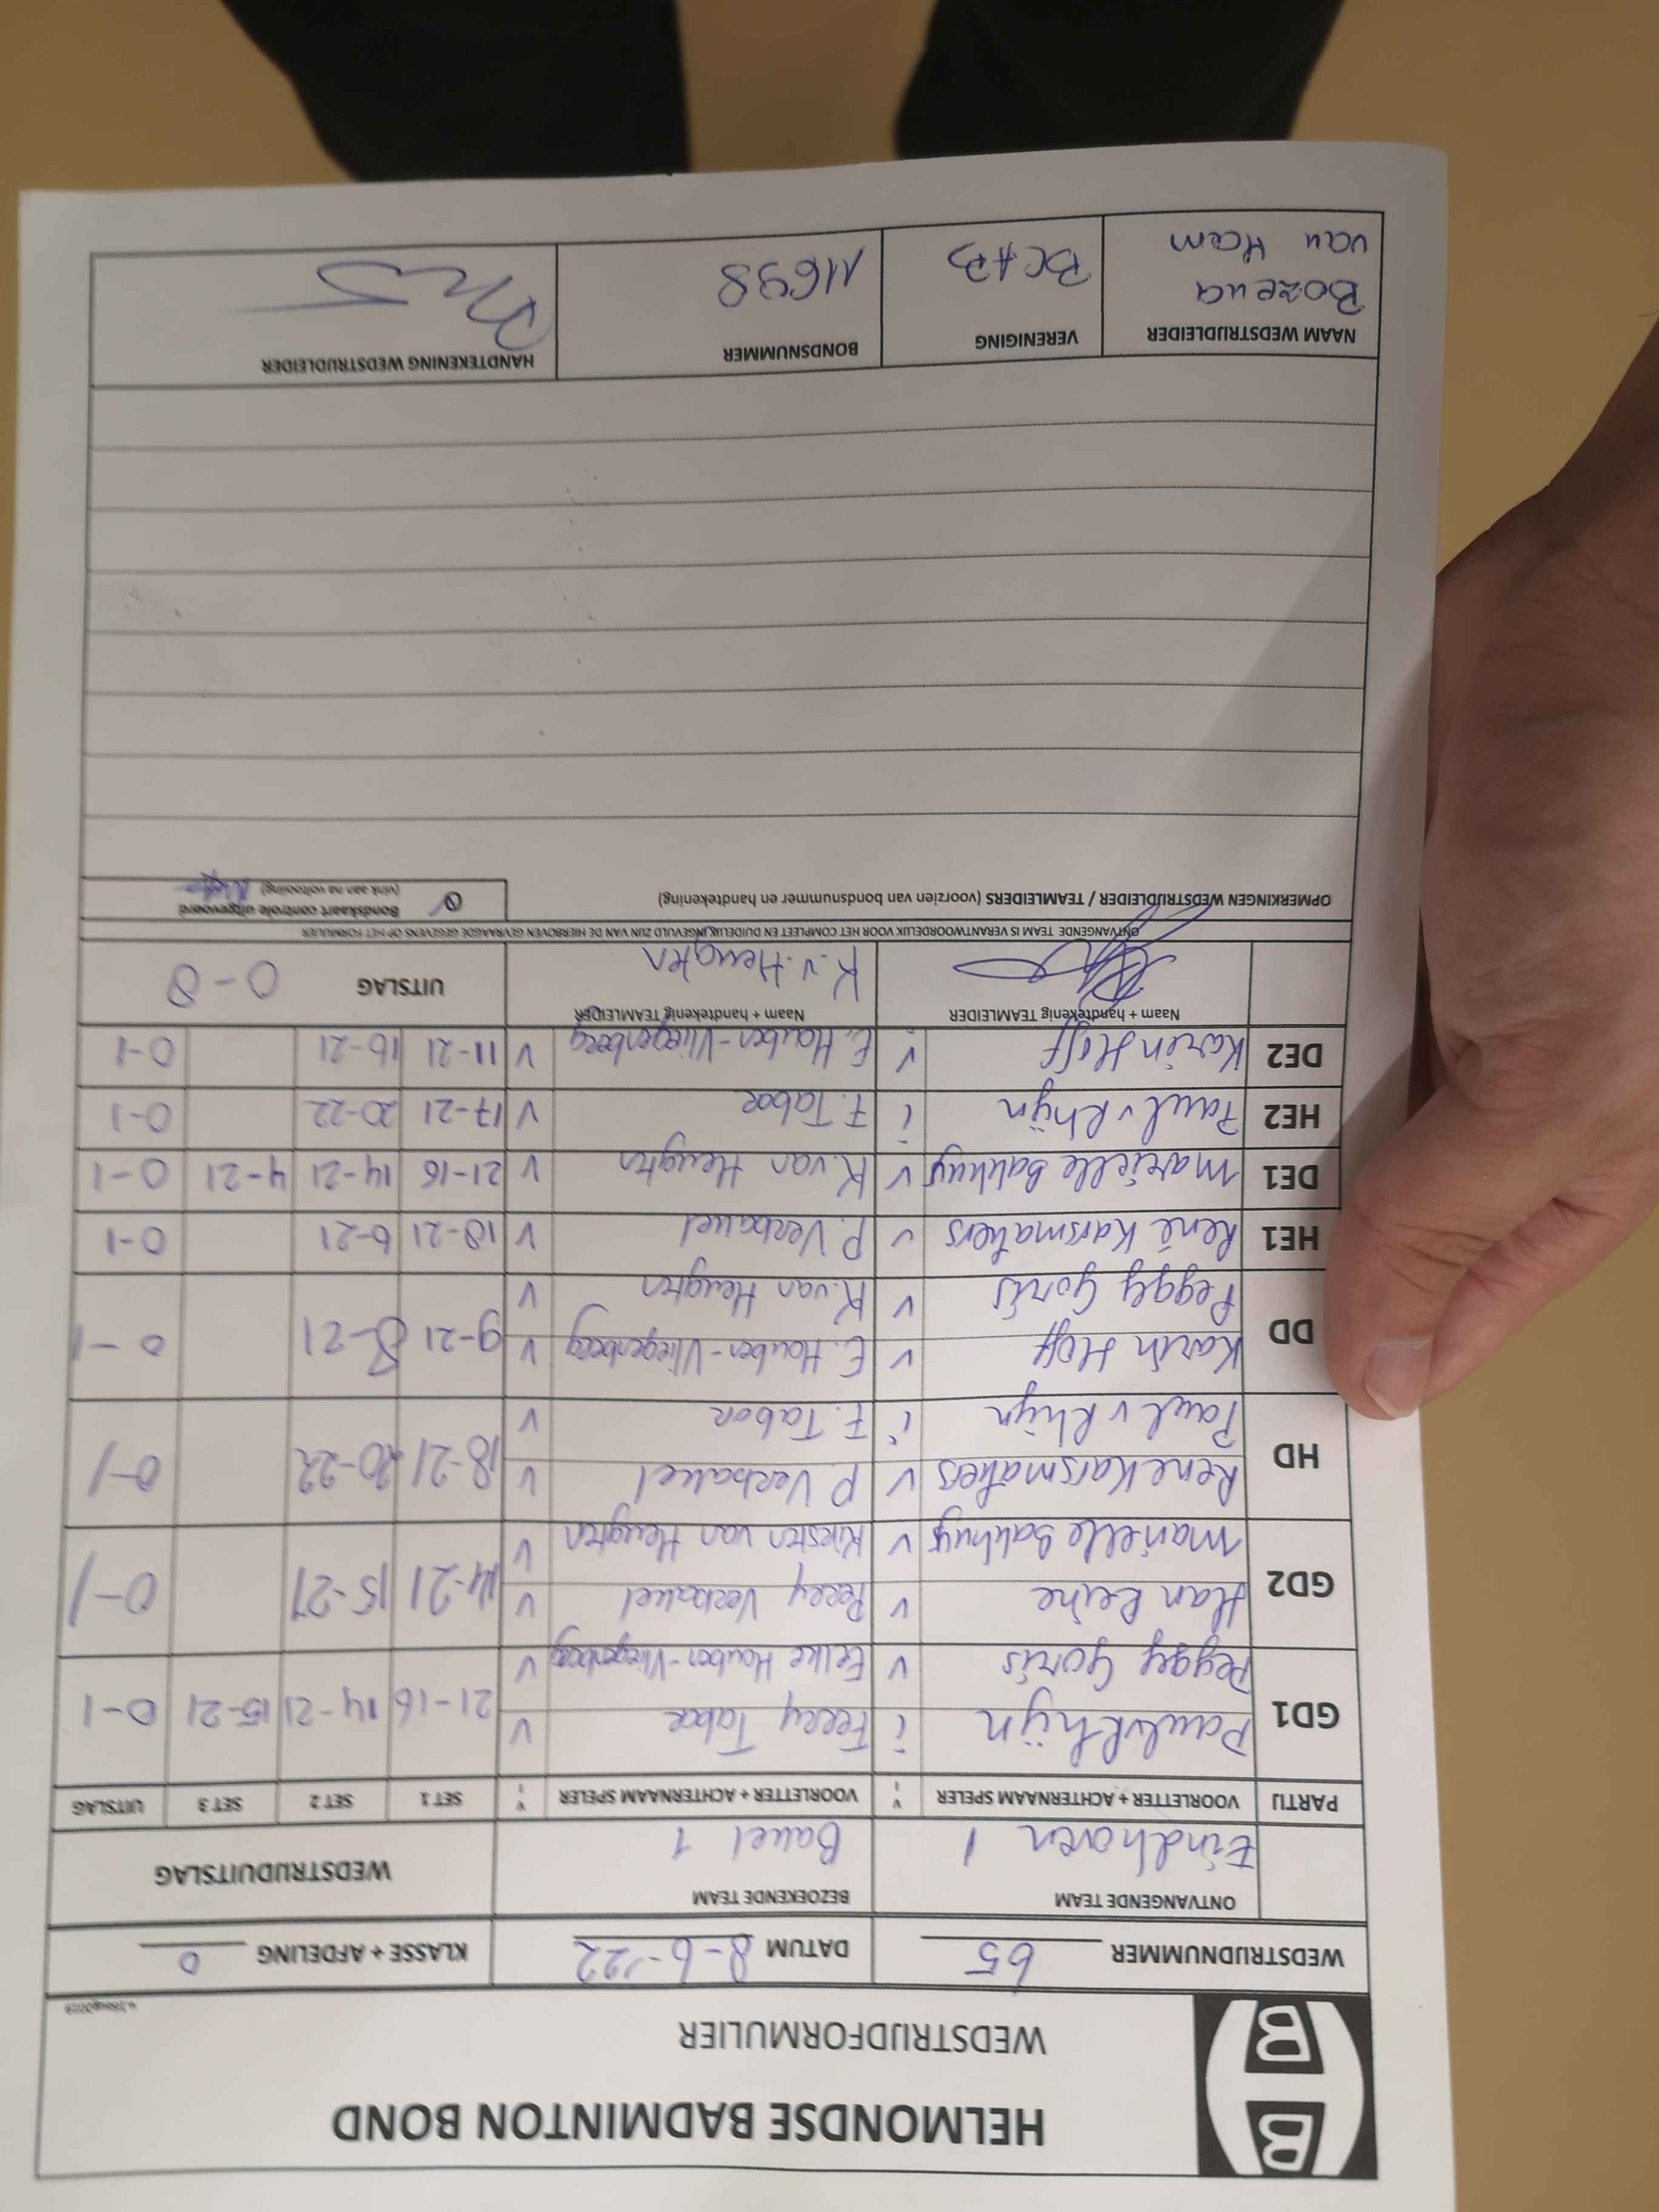 HELMONDSE BADMINTON BOND
WEDSTRIJDFORMULIER
WEDSTRIJDNUMMER 65 DATUM 8-6-'22 KLASSE + AFDELING 0
ONTVANGENDE TEAM BEZOEKENDE TEAM WEDSTRIJDUITSLAG
Eindhoven 1 Bavel 1
PARTIJ VOORLETTER + ACHTERNAAM SPELER V I VOORLETTER + ACHTERNAAM SPELER V I SET 1 SET 2 SET 3 UITSLAG
GD1 Paul v Rhijn i Ferry Tabor V 21-16 14-21 15-21 0-1
Peggy Goris V Eelke Hauben-Vliegenberg V
GD2 Han Reine V Perry Verbakel V 14-21 15-21 0-1
Marielle Bakhuys V Kirsten van Heugten V
HD René Karsmakers V P Verbakel V 18-21 20-22 0-1
Paul v Rhijn i F. Tabor V
DD Karin Hoff V E. Hauben-Vliegenberg V 9-21 8-21 0-1
Peggy Goris V K. van Heugten V
HE1 René Karsmakers V P. Verbakel V 18-21 6-21 0-1
DE1 Marielle Bakhuys V K. van Heugten V 21-16 14-21 4-21 0-1
HE2 Paul v Rhijn i F. Tabor V 17-21 20-22 0-1
DE2 Karin Hoff V E. Hauben-Vliegenberg V 11-21 16-21 0-1
Naam + handtekenig TEAMLEIDER Naam + handtekenig TEAMLEIDER UITSLAG 0-8
K. v. Heugten
ONTVANGENDE TEAM IS VERANTWOORDELIJK VOOR HET COMPLEET EN DUIDELIJK INGEVULD ZIJN VAN DE HIERBOVEN GEVRAAGDE GEGEVENS OP HET FORMULIER
OPMERKINGEN WEDSTRIJDLEIDER / TEAMLEIDERS (voorzien van bondsnummer en handtekening)
Bondskaart controle uitgevoerd
(vink aan na voltooiing)
NAAM WEDSTRIJDLEIDER VERENIGING BONDSNUMMER HANDTEKENING WEDSTRIJDLEIDER
Bozena BCAB 11698
van Ham